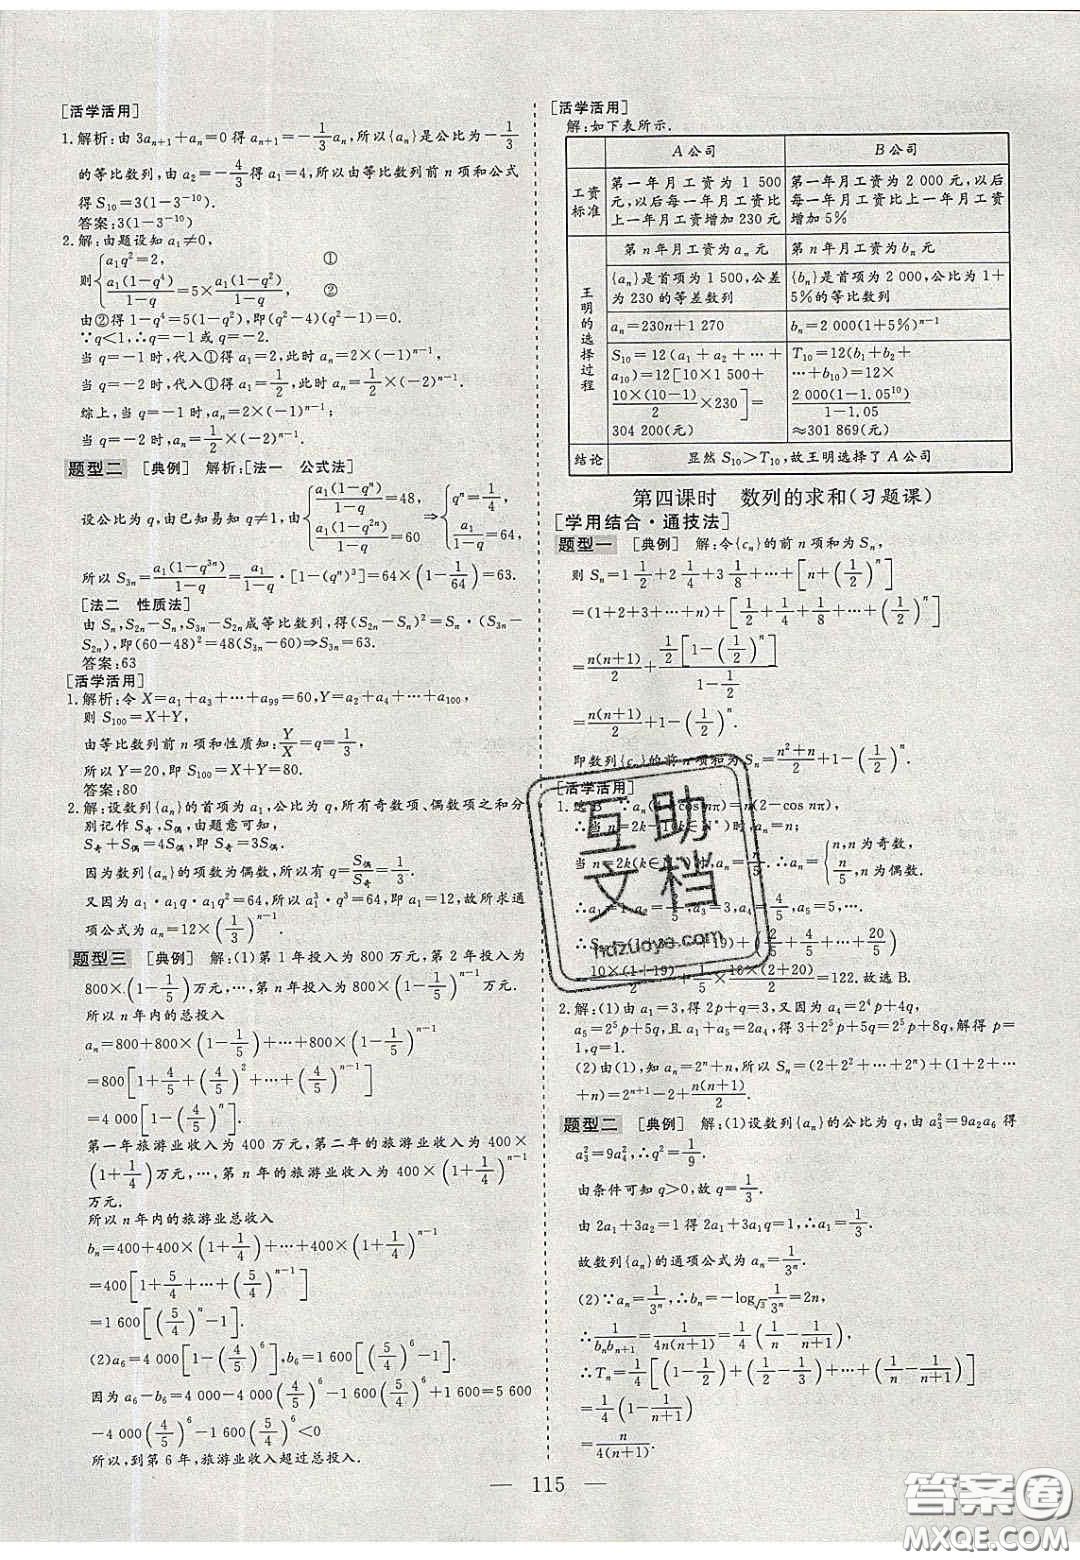 [活学活用]
1.解析:由 3aₙ₊₁+aₙ=0 得 aₙ₊₁=-1/3 aₙ,所以{aₙ}是公比为-1/3
的等比数列,由 a₂=-4/3得 a₁=4,所以由等比数列前 n 项和公式
得 S₁₀=3(1-3⁻¹⁰).
答案:3(1-3⁻¹⁰)
2.解:由题设知 a₁≠0,
则{a₁q²=2, ①
a₁(1-q⁴)/(1-q)=5×a₁(1-q²)/(1-q), ②
由②得 1-q⁴=5(1-q²),即(q²-4)(q²-1)=0.
∵q<1,∴q=-1 或 q=-2.
当 q=-1 时,代入①得 a₁=2,此时 aₙ=2×(-1)ⁿ⁻¹,
当 q=-2 时,代入①得 a₁=1/2,此时 aₙ=1/2×(-2)ⁿ⁻¹.
综上,当 q=-1 时,aₙ=2×(-1)ⁿ⁻¹;
当 q=-2 时,aₙ=1/2×(-2)ⁿ⁻¹.
题型二 [典例] 解析:[法一 公式法]
设公比为 q,由已知易知 q≠1,由{a₁(1-qⁿ)/(1-q)=48, a₁(1-q²ⁿ)/(1-q)=60 ⇒{qⁿ=1/4, a₁/(1-q)=64,
所以 S₃ₙ=a₁(1-q³ⁿ)/(1-q)=a₁/(1-q)·[1-(qⁿ)³]=64×(1-1/64)=63.
[法二 性质法]
由 Sₙ,S₂ₙ-Sₙ,S₃ₙ-S₂ₙ成等比数列,得(S₂ₙ-Sₙ)²=Sₙ·(S₃ₙ-
S₂ₙ),即(60-48)²=48(S₃ₙ-60)⇒S₃ₙ=63.
答案:63
[活学活用]
1.解析:令 X=a₁+a₃+⋯+a₉₉=60,Y=a₂+a₄+⋯+a₁₀₀,
则 S₁₀₀=X+Y,
由等比数列前 n 项和性质知:Y/X=q=1/3,
所以 Y=20,即 S₁₀₀=X+Y=80.
答案:80
2.解:设数列{aₙ}的首项为 a₁,公比为 q,所有奇数项、偶数项之和分
别记作 S奇,S偶,由题意可知,
S奇+S偶=4S偶,即 S奇=3S偶.
因为数列{aₙ}的项数为偶数,所以有 q=S偶/S奇=1/3.
又因为 a₁·a₁q·a₁q²=64,所以 a₁³·q³=64,即 a₁=12,故所求通
项公式为 aₙ=12×(1/3)ⁿ⁻¹.
题型三 [典例] 解:(1)第 1 年投入为 800 万元,第 2 年投入为
800×(1-1/5)万元,⋯,第 n 年投入为 800×(1-1/5)ⁿ⁻¹万元.
所以 n 年内的总投入
aₙ=800+800×(1-1/5)+⋯+800×(1-1/5)ⁿ⁻¹
=800[1+4/5+(4/5)²+⋯+(4/5)ⁿ⁻¹]
=4 000[1-(4/5)ⁿ]
第一年旅游业收入为 400 万元,第二年的旅游业收入为 400×
(1+1/4)万元,⋯,第 n 年的旅游业收入为 400×(1+1/4)ⁿ⁻¹
万元.
所以 n 年内的旅游业总收入
bₙ=400+400×(1+1/4)+⋯+400×(1+1/4)ⁿ⁻¹
=400[1+5/4+⋯+(5/4)ⁿ⁻¹]
=1 600[(5/4)ⁿ-1].
(2)a₆=4 000[1-(4/5)⁶],b₆=1 600[(5/4)⁶-1].
因为 a₆-b₆=4 000-4 000(4/5)⁶-1 600(5/4)⁶+1 600=5 600
-4 000(4/5)⁶-1 600(5/4)⁶<0
所以,到第 6 年,旅游业收入超过总投入.
[活学活用]
解:如下表所示.
A 公司 B 公司
工资标准 第一年月工资为 1 500元,以后每一年月工资比上一年月工资增加 230 元 第一年月工资为 2 000 元,以后每一年月工资比上一年月工资增加 5%
王明的选择过程 第 n 年月工资为 aₙ 元 第 n 年月工资为 bₙ 元
{aₙ}是首项为 1 500,公差为 230 的等差数列 {bₙ}是首项为 2 000,公比为 1+5%的等比数列
aₙ=230n+1 270 bₙ=2 000(1+5%)ⁿ⁻¹
S₁₀=12(a₁+a₂+⋯+a₁₀)=12[10×1 500+10×(10-1)/2×230]=304 200(元) T₁₀=12(b₁+b₂+⋯+b₁₀)=12×2 000(1-1.05¹⁰)/(1-1.05)≈301 869(元)
结论 显然 S₁₀>T₁₀,故王明选择了 A 公司
第四课时 数列的求和(习题课)
[学用结合·通技法]
题型一 [典例] 解:令{cₙ}的前 n 项和为 Sₙ,
则 Sₙ=1 1/2+2 1/4+3 1/8+⋯+[n+(1/2)ⁿ]
=(1+2+3+⋯+n)+[1/2+1/4+1/8+⋯+(1/2)ⁿ]
=n(n+1)/2+1/2[1-(1/2)ⁿ]/(1-1/2)
=n(n+1)/2+1-(1/2)ⁿ.
即数列{cₙ}的前 n 项和为 Sₙ=(n²+n)/2+1-(1/2)ⁿ.
[活学活用]
1.选 B ∵aₙ(2+cos nπ)=n(2-cos nπ),
∴当 n=2k-1(k∈N*)时,aₙ=n;
当 n=2k(k∈N*)时,aₙ=n/5.∴aₙ={n,n为奇数, n/5,n为偶数.
∴a₁=1,a₂=2/5,a₃=3,a₄=4/5,a₅=5,⋯.
+19)+(2/5+4/5+⋯+20/5)
10×(1+19)/2+1/5×10×(2+20)/2=122.故选 B.
2.解:(1)由 a₁=3,得 2p+q=3,又因为 a₄=2⁴p+4q,
a₅=2⁵p+5q,且 a₁+a₅=2a₄,得 3+2⁵p+5q=2⁵p+8q,解得 p=
1,q=1.
(2)由(1),知 aₙ=2ⁿ+n,所以 Sₙ=(2+2²+⋯+2ⁿ)+(1+2+⋯
+n)=2ⁿ⁺¹-2+n(n+1)/2.
题型二 [典例] 解:(1)设数列{aₙ}的公比为 q,由 a₃²=9a₂a₆ 得
a₃²=9a₄²,∴q²=1/9.
由条件可知 q>0,故 q=1/3.
由 2a₁+3a₂=1 得 2a₁+3a₁q=1,∴a₁=1/3.
故数列{aₙ}的通项公式为 aₙ=1/3ⁿ.
(2)∵aₙ=1/3ⁿ,∴bₙ=-log√3 1/3ⁿ=2n,
∴1/(bₙbₙ₊₁)=1/(4n(n+1))=1/4(1/n-1/(n+1)),
∴Tₙ=1/4[(1-1/2)+(1/2-1/3)+⋯+(1/n-1/(n+1))]
=1/4(1-1/(n+1))
=n/(4(n+1)).
— 115 —
互助文档
hdzuoye.com
答案圈
MXQE.COM